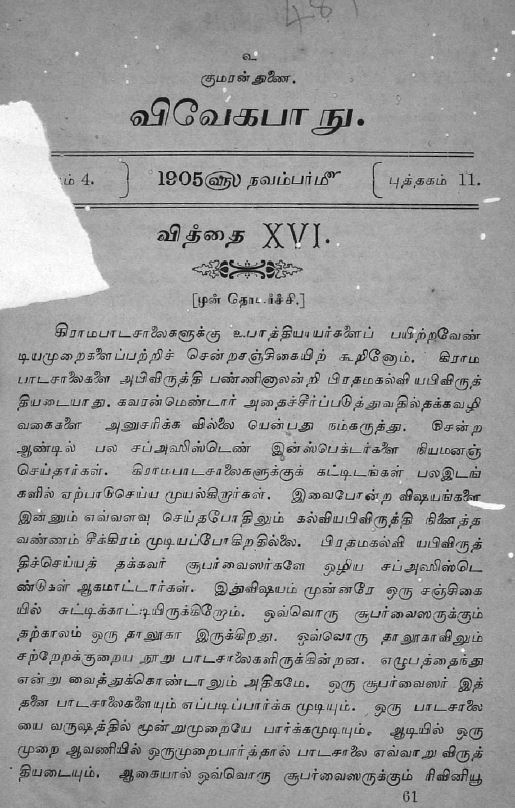 481
உ
குமரன் துணை.
விவேகபாநு.
கம் 4. 1905௵ நவம்பர்௴ புத்தகம் 11.
வித்தை XVI.
[முன் தொடர்ச்சி.]
கிராமபாடசாலைகளுக்கு உபாத்தியாயர்களைப் பயிற்றவேண்
டியமுறைகளைப்பற்றிச் சென்றசஞ்சிகையிற் கூறினோம். கிராம
பாடசாலைகளை அபிவிருத்தி பண்ணினாலன்றி பிரதமகல்வி யபிவிருத்
தியடையாது. கவரன்மெண்டார் அதைச்சீர்ப்படுத்துவதில்தக்கவழி
வகைகளை அனுசரிக்க வில்லை யென்பது நம்கருத்து. சென்ற
ஆண்டில் பல சப்அஸிஸ்டெண் இன்ஸ்பெக்டர்களை நியமனஞ்
செய்தார்கள். கிராமபாடசாலைகளுக்குக் கட்டிடங்கள் பலஇடங்
களில் ஏற்பாடுசெய்ய முயல்கிறார்கள். இவைபோன்ற விஷயங்களை
இன்னும் எவ்வளவு செய்தபோதிலும் கல்வியபிவிருத்தி நினைத்த
வண்ணம் சீக்கிரம் முடியப்போகிறதில்லை. பிரதமகல்வி யபிவிருத்
திச்செய்யத் தக்கவர் சூபர்வைஸர்களே ஒழிய சப்அஸிஸ்டெ
ண்டுகள் ஆகமாட்டார்கள். இதுவிஷயம் முன்னரே ஒரு சஞ்சிகை
யில் சுட்டிக்காட்டியிருக்கிறோம். ஒவ்வொரு சூபர்வைஸருக்கும்
தற்காலம் ஒரு தாலூகா இருக்கிறது. ஒவ்வொரு தாலூகாவிலும்
சற்றேறக்குறைய நூறு பாடசாலைகளிருக்கின்றன. எழுபத்தைந்து
என்று வைத்துக்கொண்டாலும் அதிகமே. ஒரு சூபர்வைஸர் இத்
தனை பாடசாலைகளையும் எப்படிப்பார்க்க முடியும். ஒரு பாடசாலை
யை வருஷத்தில் மூன்றுமுறையே பார்க்கமுடியும். ஆடியில் ஒரு
முறை ஆவணியில் ஒருமுறைபார்த்தால் பாடசாலை எவ்வாறு விருத்
தியடையும். ஆகையால் ஒவ்வொரு சூபர்வைஸருக்கும் ரிவினியூ
61